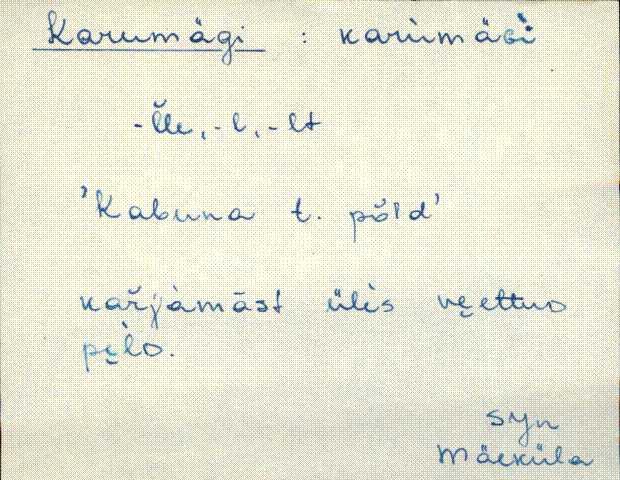 Karumägi : karùmäɢì
-l̆le, -l, -lt
'Kabuna t. põld'
kar̆jàmāst ülès ve̮ettuᴅ
pe̮lᴅ.
Syn
Mäeküla